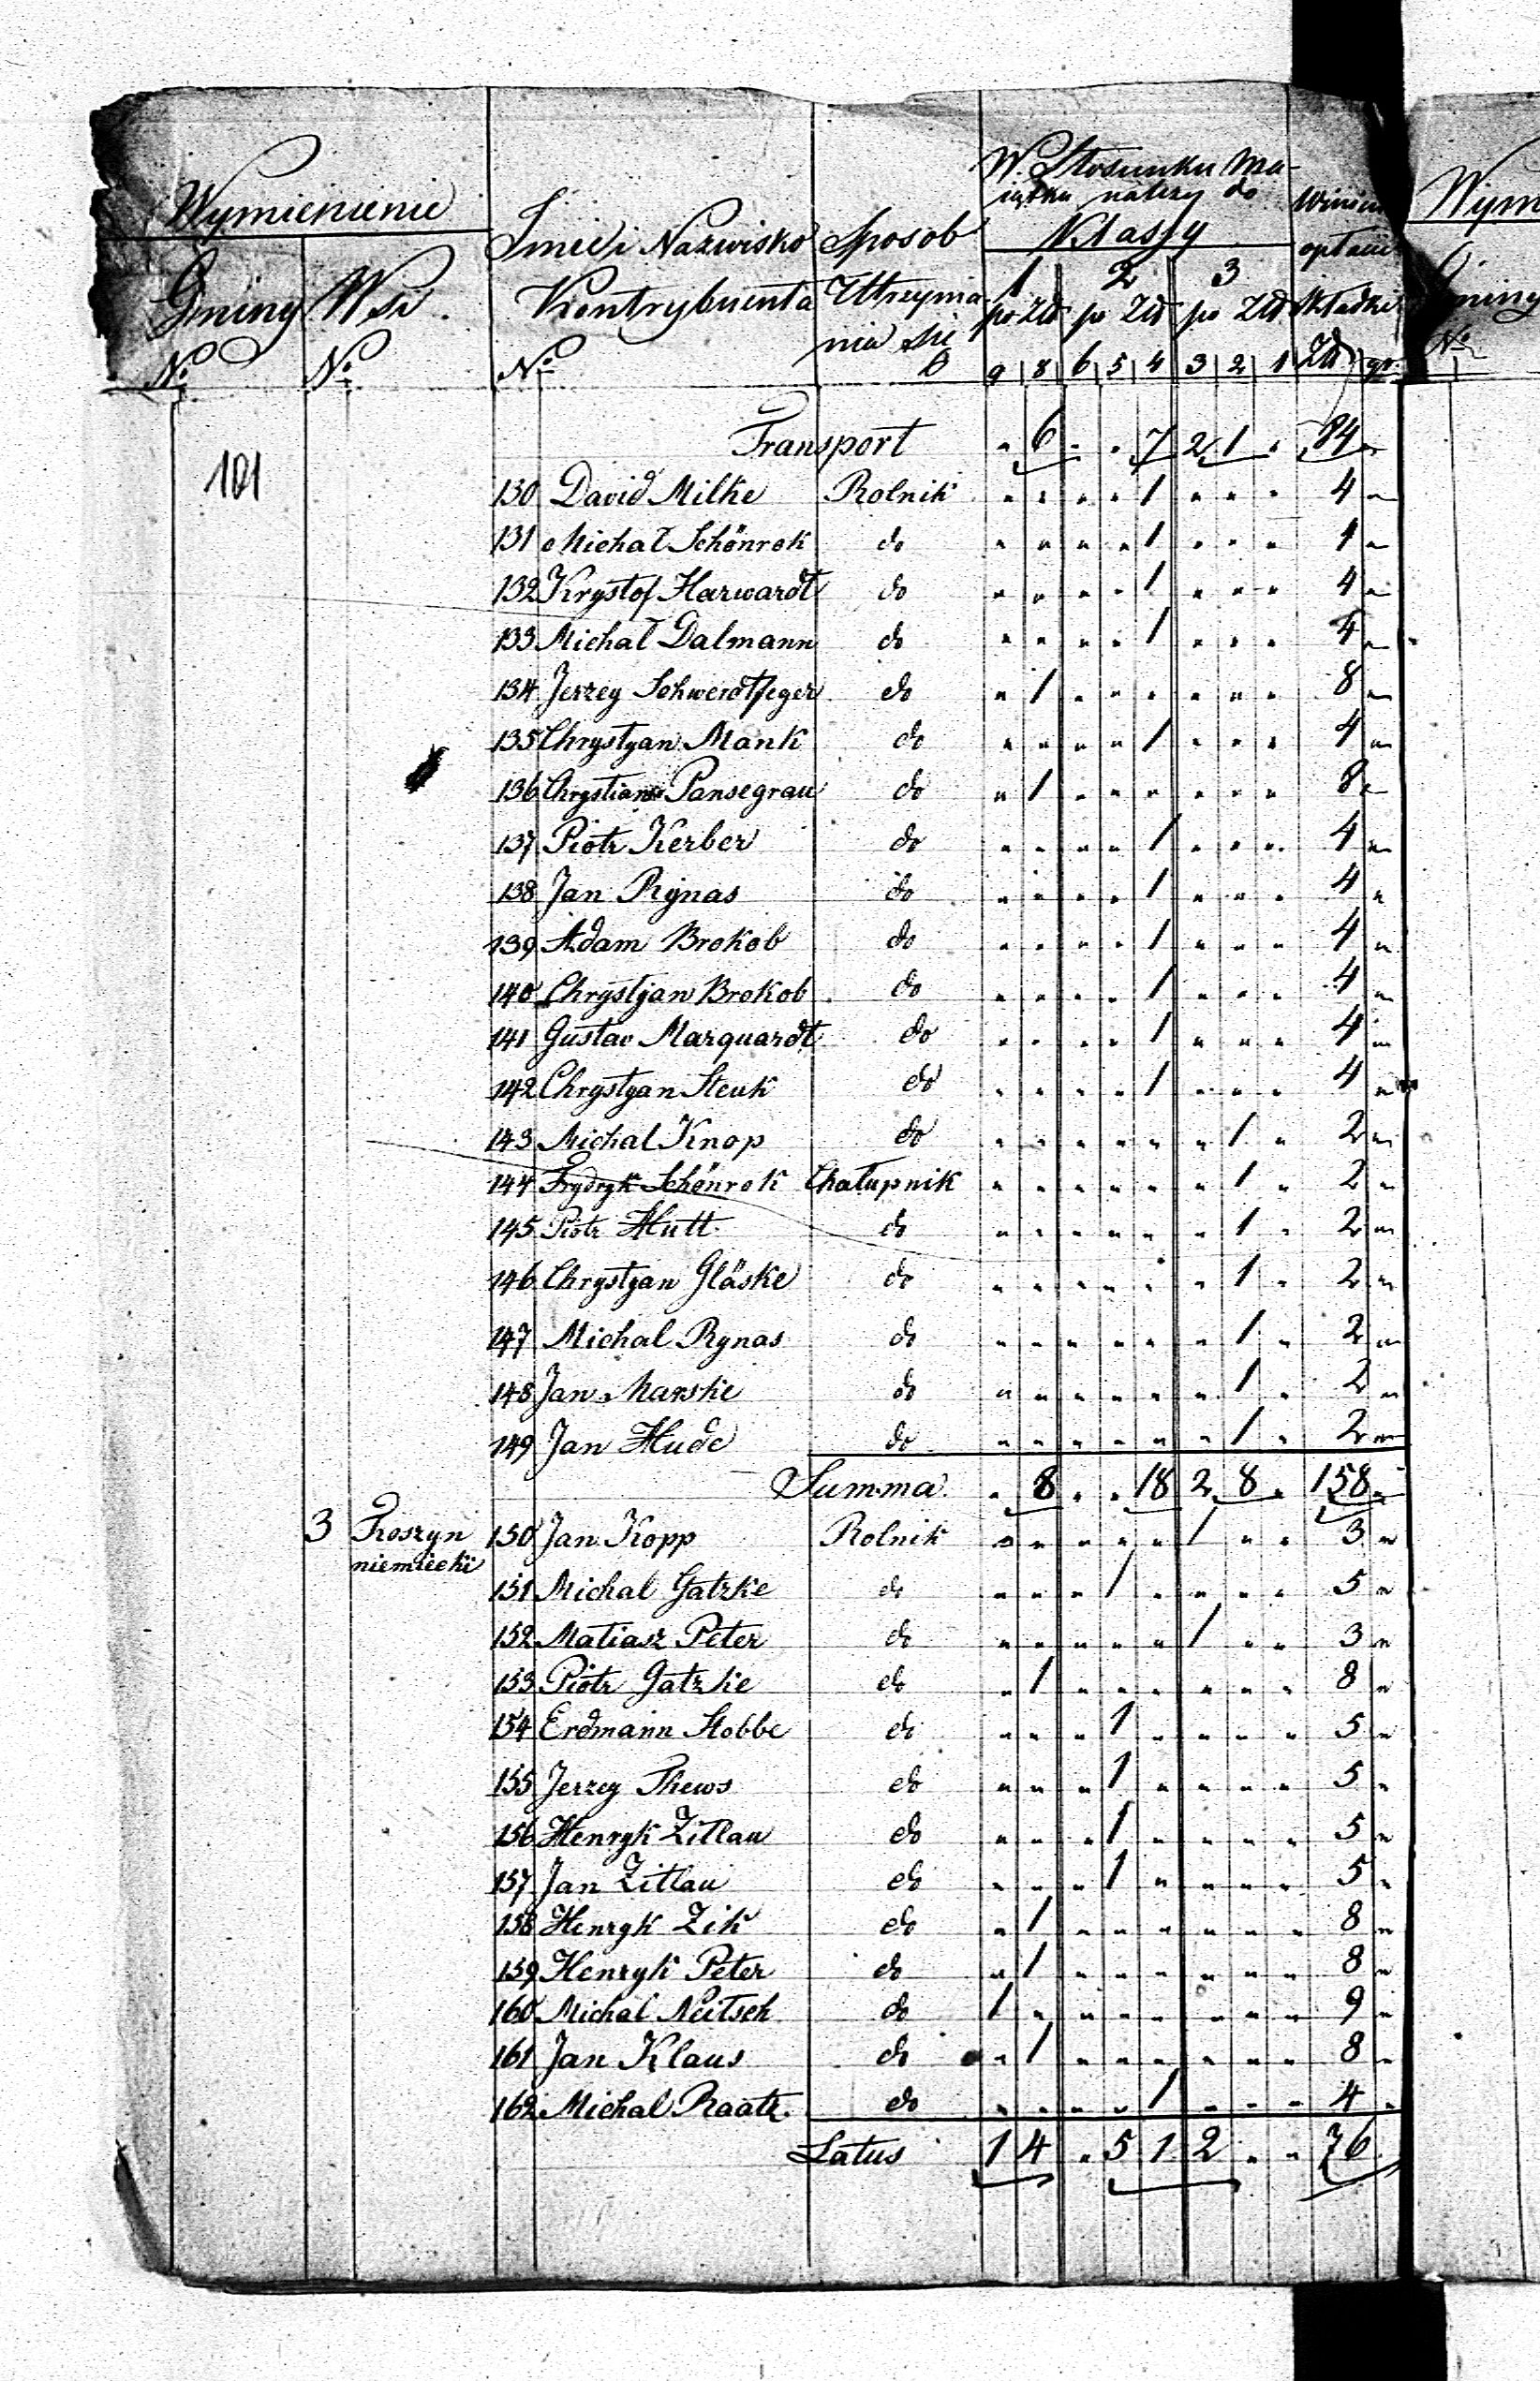 Wymienienie
Gminy Wsi
No No
Imie i Nazwisko
Kontrybuenta
No
Sposob
Utrzyma
nia się
W Stosunku Ma-
iątku należy do
Klassy
1 2 3
po Zł po Zł po Zł
9 8 6 5 4 3 2 1
Winien
opłacić
Składki
Zł gr.
Wym
Gminy
No
Transport " 6 " " 7 2 1 " 84 "
101
130 David Milke Rolnik " " " " 1 " " " 4 "
131 Michał Schönrok do " " " " 1 " " " 4 "
132 Krystof Harwardt do " " " " 1 " " " 4 "
133 Michał Dalmann do " " " " 1 " " " 4 "
134 Jerzey Schwerdtfeger do " 1 " " " " " " 8 "
135 Chrystyan Mank do " " " " 1 " " " 4 "
136 Chrystian Pansegrau do " 1 " " " " " " 8 "
137 Piotr Kerber do " " " " 1 " " " 4 "
138 Jan Rynas do " " " " 1 " " " 4 "
139 Adam Brokob do " " " " 1 " " " 4 "
140 Chrystjan Brokob do " " " " 1 " " " 4 "
141 Gustav Marquardt do " " " " 1 " " " 4 "
142 Chrystyan Steuk do " " " " 1 " " " 4 "
143 Michal Knop do " " " " " " 1 " 2 "
144 Frydryk Schönrok Chałupnik " " " " " " 1 " 2 "
145 Piotr Hutt do " " " " " " 1 " 2 "
146 Chrystyan Gläske do " " " " " " 1 " 2 "
147 Michal Rynas do " " " " " " 1 " 2 "
148 Jan Marske do " " " " " " 1 " 2 "
149 Jan Hude do " " " " " " 1 " 2 "
Summa " 8 " " 18 2 8 " 158 "
3 Proszyn 150 Jan Kopp Rolnik " " " " " 1 " " 3 "
niemiecki
151 Michal Gatzke do " " " 1 " " " " 5 "
152 Matiasz Peter do " " " " " 1 " " 3 "
153 Piotr Gatzke do " 1 " " " " " " 8 "
154 Erdmann Stobbe do " " " 1 " " " " 5 "
155 Jerzey Thews do " " " 1 " " " " 5 "
156 Henryk Zitlau do " " " 1 " " " " 5 "
157 Jan Zitlau do " " " 1 " " " " 5 "
158 Henryk Zik do " 1 " " " " " " 8 "
159 Henryk Peter do " 1 " " " " " " 8 "
160 Michal Neitsch do 1 " " " " " " " 9 "
161 Jan Klaus do " 1 " " " " " " 8 "
162 Michal Raatz do " " " " 1 " " " 4 "
Latus 1 4 " 5 1 2 " " 76